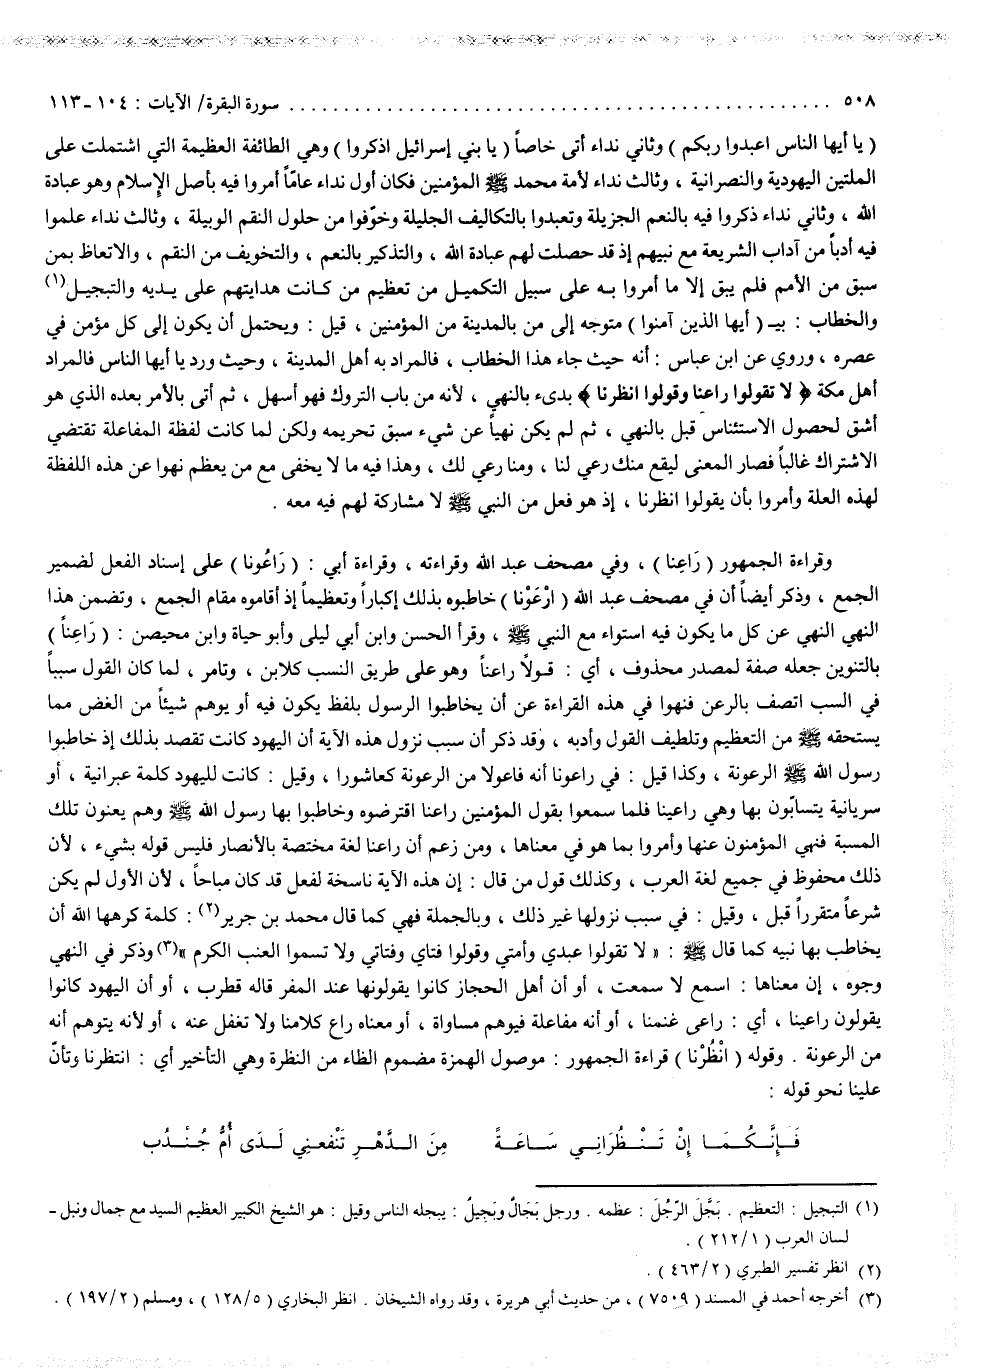 ٥٠٨ ........................................ سورة البقرة/ الآيات : ١٠٤ -١١٣
( يا أيها الناس اعبدوا ربكم ) وثاني نداء أتى خاصاً ( يا بني إسرائيل اذكروا ) وهي الطائفة العظيمة التي اشتملت على
الملتين اليهودية والنصرانية ، وثالث نداء لأمة محمد ﷺ المؤمنين فكان أول نداء عامّاً أمروا فيه بأصل الإسلام وهو عبادة
الله ، وثاني نداء ذكروا فيه بالنعم الجزيلة وتعبدوا بالتكاليف الجليلة وخوّفوا من حلول النقم الوبيلة ، وثالث نداء علموا
فيه أدباً من آداب الشريعة مع نبيهم إذ قد حصلت لهم عبادة الله ، والتذكير بالنعم ، والتخويف من النقم ، والاتعاظ بمن
سبق من الأمم فلم يبق إلا ما أمروا به على سبيل التكميل من تعظيم من كانت هدايتهم على يديه والتبجيل(١)
والخطاب : بيـ ( أيها الذين آمنوا ) متوجه إلى من بالمدينة من المؤمنين ، قيل : ويحتمل أن يكون إلى كل مؤمن في
عصره ، وروي عن ابن عباس : أنه حيث جاء هذا الخطاب ، فالمراد به أهل المدينة ، وحيث ورد يا أيها الناس فالمراد
أهل مكة ﴿ لا تقولوا راعنا وقولوا انظرنا ﴾ بدىء بالنهي ، لأنه من باب التروك فهو أسهل ، ثم أتى بالأمر بعده الذي هو
أشق لحصول الاستئناس قبل بالنهي ، ثم لم يكن نهياً عن شيء سبق تحريمه ولكن لما كانت لفظة المفاعلة تقتضي
الاشتراك غالباً فصار المعنى ليقع منك رعي لنا ، ومنا رعي لك ، وهذا فيه ما لا يخفى مع من يعظم نهوا عن هذه اللفظة
لهذه العلة وأمروا بأن يقولوا انظرنا ، إذ هو فعل من النبي ﷺ لا مشاركة لهم فيه معه .
وقراءة الجمهور ( رَاعِنا ) ، وفي مصحف عبد الله وقراءته ، وقراءة أبي : ( رَاعُونا ) على إسناد الفعل لضمير
الجمع ، وذكر أيضاً أن في مصحف عبد الله ( ارْعَوْنا ) خاطبوه بذلك إكباراً وتعظيماً إذ أقاموه مقام الجمع ، وتضمن هذا
النهي النهي عن كل ما يكون فيه استواء مع النبي ﷺ ، وقرأ الحسن وابن أبي ليلى وأبو حياة وابن محيصن : ( رَاعِناً )
بالتنوين جعله صفة لمصدر محذوف ، أي : قولاً راعناً وهو على طريق النسب كلابن ، وتامر ، لما كان القول سبباً
في السب اتصف بالرعن فنهوا في هذه القراءة عن أن يخاطبوا الرسول بلفظ يكون فيه أو يوهم شيئاً من الغض مما
يستحقه ﷺ من التعظيم وتلطيف القول وأدبه ، وقد ذكر أن سبب نزول هذه الآية أن اليهود كانت تقصد بذلك إذ خاطبوا
رسول الله ﷺ الرعونة ، وكذا قيل : في راعونا أنه فاعولا من الرعونة كعاشورا ، وقيل : كانت لليهود كلمة عبرانية ، أو
سريانية يتسابّون بها وهي راعينا فلما سمعوا بقول المؤمنين راعنا اقترضوه وخاطبوا بها رسول الله ﷺ وهم يعنون تلك
المسبة فنهي المؤمنون عنها وأمروا بما هو في معناها ، ومن زعم أن راعنا لغة مختصة بالأنصار فليس قوله بشيء ، لأن
ذلك محفوظ في جميع لغة العرب ، وكذلك قول من قال : إن هذه الآية ناسخة لفعل قد كان مباحاً ، لأن الأول لم يكن
شرعاً متقرراً قبل ، وقيل : في سبب نزولها غير ذلك ، وبالجملة فهي كما قال محمد بن جرير(٢) : كلمة كرهها الله أن
يخاطب بها نبيه كما قال ﷺ : « لا تقولوا عبدي وأمتي وقولوا فتاي وفتاتي ولا تسموا العنب الكرم »(٣) وذكر في النهي
وجوه ، إن معناها : اسمع لا سمعت ، أو أن أهل الحجاز كانوا يقولونها عند المفر قاله قطرب ، أو أن اليهود كانوا
يقولون راعينا ، أي : راعى غنمنا ، أو أنه مفاعلة فيوهم مساواة ، أو معناه راع كلامنا ولا تغفل عنه ، أو لأنه يتوهم أنه
من الرعونة . وقوله ( انْظُرْنا ) قراءة الجمهور : موصول الهمزة مضموم الظاء من النظرة وهي التأخير أي : انتظرنا وتأنّ
علينا نحو قوله :
فَإِنَّكُمَا إِنْ تَنْظُرَانِي سَاعَةً مِنَ الدَّهْرِ تَنْفَعنِي لَدَى أُمُّ جُنْدُب
(١) التبجيل : التعظيم . بَجَّلَ الرّجُلَ : عظمه . ورجل بَجَالٌ وبَجِيلٌ : يبجله الناس وقيل : هو الشيخ الكبير العظيم السيد مع جمال ونبل -
لسان العرب ( ٢١٢/١ ) .
(٢) انظر تفسير الطبري ( ٤٦٣/٢ ) .
(٣) أخرجه أحمد في المسند ( ٧٥٠٩ ) ، من حديث أبي هريرة ، وقد رواه الشيخان . انظر البخاري ( ١٢٨/٥ ) ، ومسلم ( ١٩٧/٢ ) .